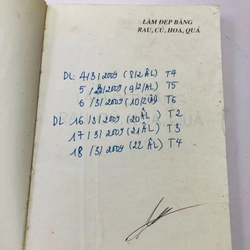 LÀM ĐẸP BẰNG
RAU, CỦ, HOA, QUẢ
DL 4/3/2009 (8/2 ÂL) T4
5 /3/2009 (9/2/AL) T5
6 /3/2009 (10/2 ÂL) T6
DL 16 /3/2009 (20 ÂL) T2
17 /3/2009 (21 ÂL) T3
18 /3/2009 (22 ÂL) T4